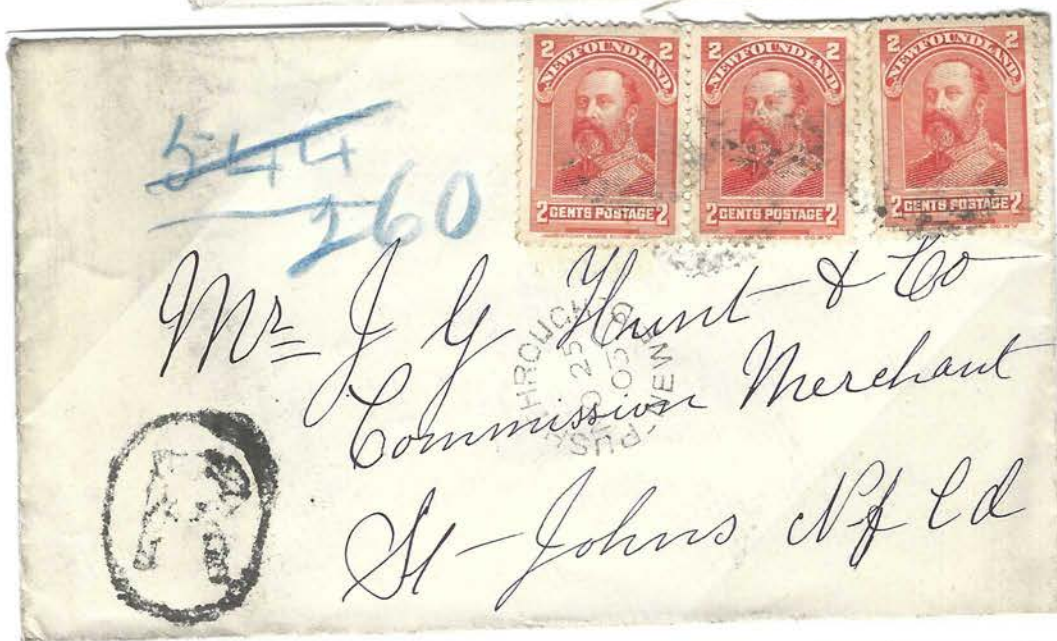 2 NEWFOUNDLAND 2
2 CENTS POSTAGE 2
2 NEWFOUNDLAND 2
2 CENTS POSTAGE 2
2 NEWFOUNDLAND 2
2 CENTS POSTAGE 2
544
260
Mr J G Hunt & Co
Commission Merchant
St-Johns Nf Ld
R
25
05
NEW